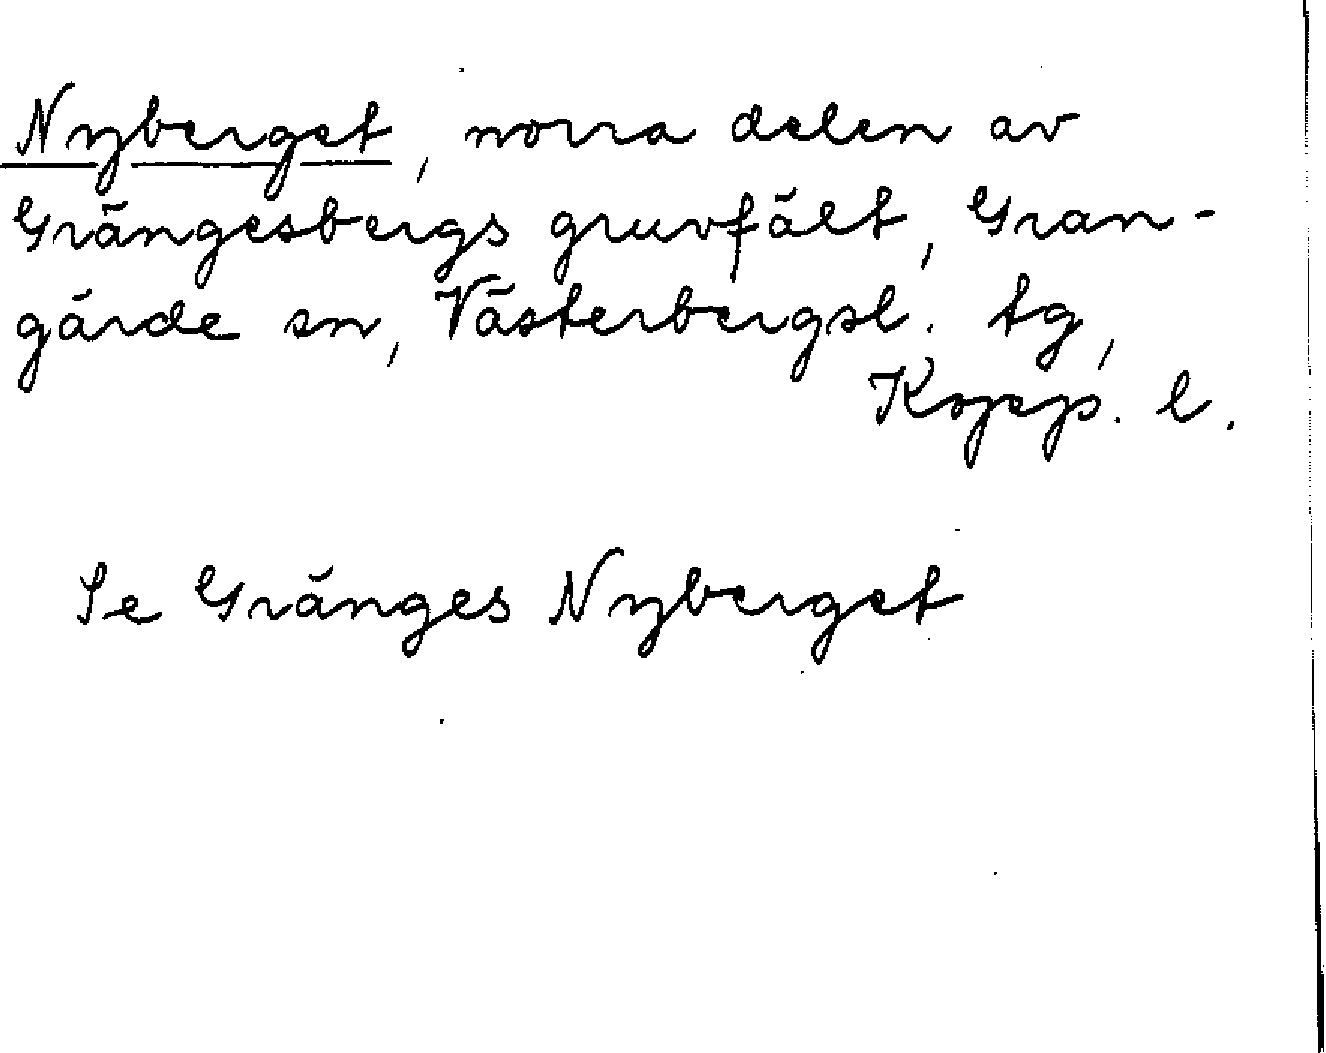 Nyberget, norra delen av
Grängesbergs gruvfält, Gran-
gärde sn, Västerbergsl. tg,
Kopp. l.
Se Gränges Nyberget